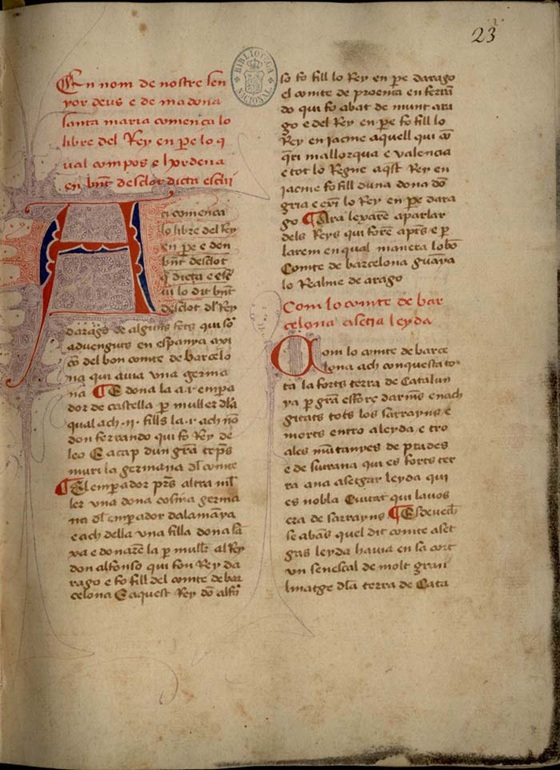 23
BIBLIOTECA NACIONAL
En nom de nostre sen
yor deus e de madona
santa maria comença lo
libre del Rey en pe lo q
ual compos e hordena
en bnt desclot dicta escri
Aci comença
lo libre del Rey
en pe e den
bnt desclot
q dicta e esc
lo dit bnt
desclot dl Rey
darago de alguns fets qui so
aduenguts en espanya axi
co del bon comte de barcelo
na qui auia vna germa
na E dona la a .i. empa
dor de castella p muller dla
qual ach .ii. fills la .i. ach no
don ferrando qui fo Rey de
leo E acap dun gra teps
muri la germana dl comte
El emperador pres altra mul
ler vna dona cosina germa
na dl emperador dalamaya
e ach della vna filla dona sa
xa e donare la p mullr al Rey
don alfonso qui fon Rey da
rago e fo fill del comte de bar
celona E aquest Rey do alfo
so fo fill lo Rey en pe darago
el comte de proença en ferra
do qui fo abat de munt ara
go e del Rey en pe fo fill lo
Rey en jacme aquell qui co
qri mallorqua e valencia
e tot lo Regne aqst Rey en
jacme fo fill duna dona do
gria e exi lo Rey en pe dara
go Ara lexare aparlar
dels Reys qui fore apres e p
larem en qual manera lo bo
Comte de barcelona guaya
lo Realme de arago
Com lo comte de bar
celona asetia leyda
Com lo comte de barce
lona ach conquesta to
ta la forts terra de Catalun
ya p gra esfore darmes e nach
gitats tots los sarrayns e
morts entro a leyda e tro
a les mutanyes de prades
e de siurana qui es forts ter
ra ana asetgar leyda qui
es nobla Ciutat qui lauos
era de sarrayns Esdeuech
se abas quel dit comte aset
gas leyda hauia en sa cort
vn senescal de molt gran
linatge dla terra de Cata